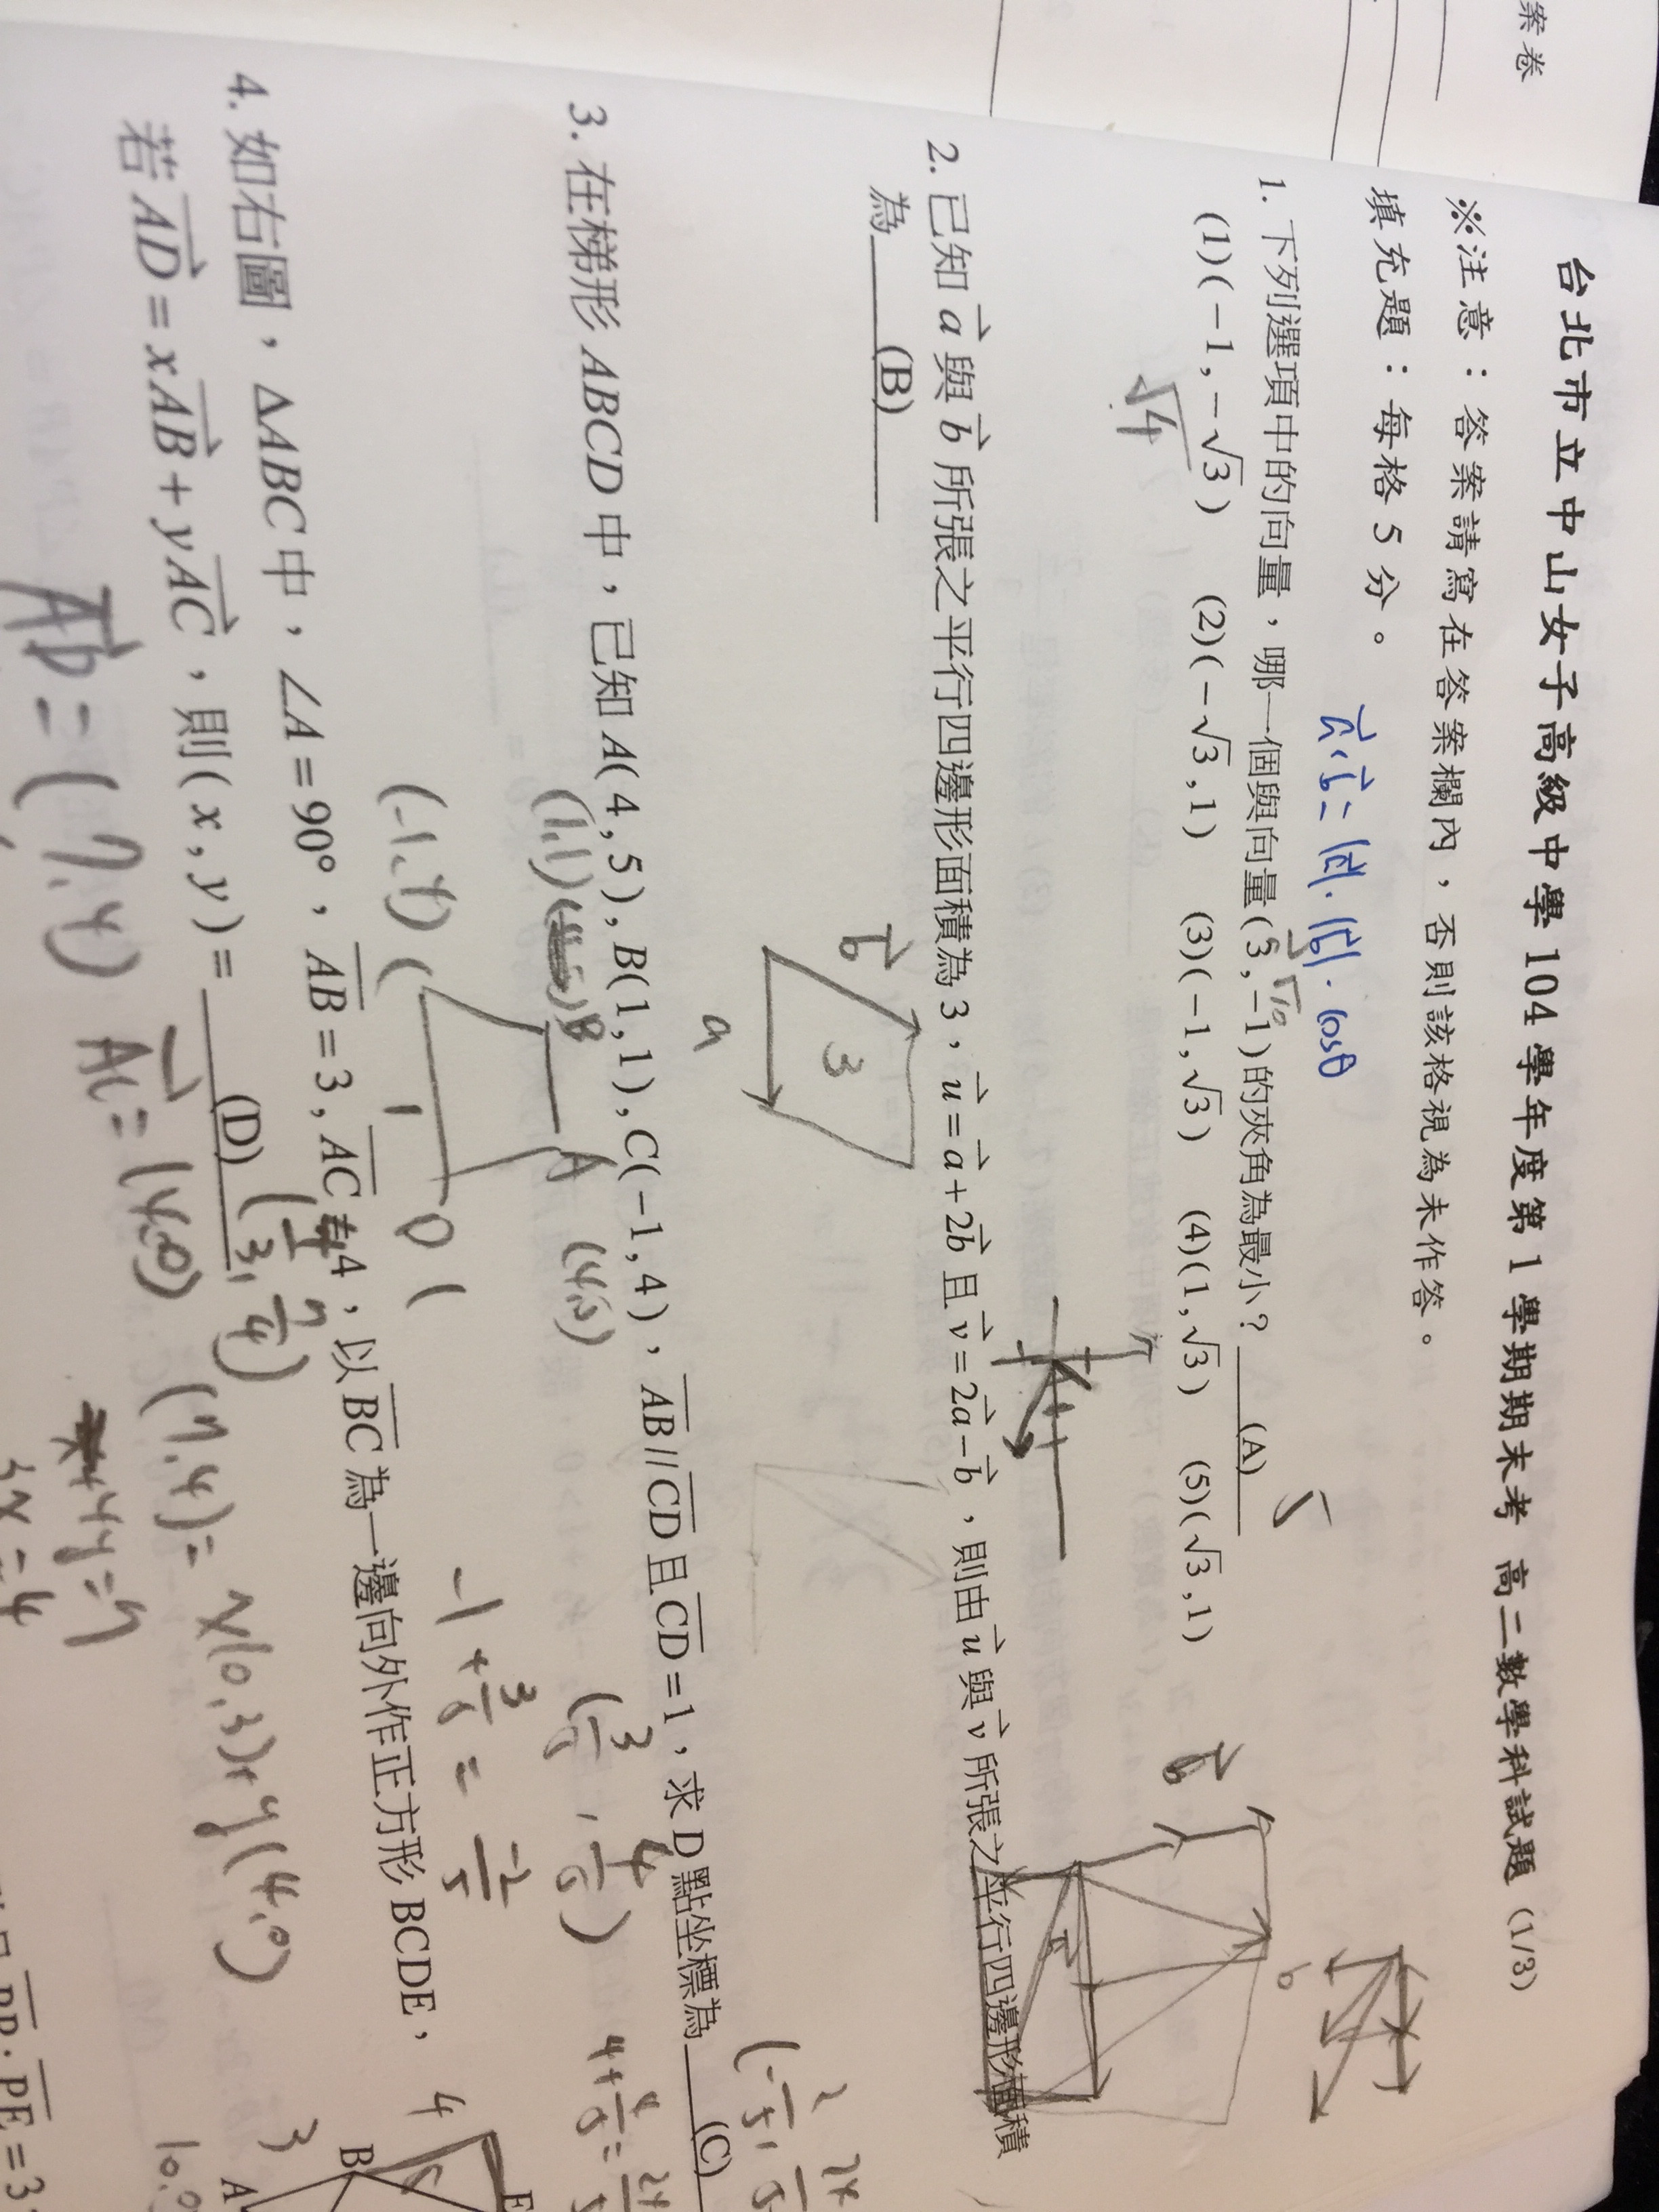 案卷
台北市立中山女子高級中學 104 學年度第 1 學期期末考 高二數學科試題 (1/3)
※注意：答案請寫在答案欄內，否則該格視為未作答。
填充題：每格 5 分。
a·b = |a|·|b|·cosθ
1. 下列選項中的向量，哪一個與向量(3,-1)的夾角為最小？(A)
√10
(1)(-1,-√3) (2)(-√3,1) (3)(-1,√3) (4)(1,√3) (5)(√3,1)
√4
b
2. 已知 a 與 b 所張之平行四邊形面積為 3，u=a+2b 且 v=2a-b，則由 u 與 v 所張之平行四邊形面積
為 (B)
b
3
a
3. 在梯形 ABCD 中，已知 A(4,5), B(1,1), C(-1,4)，AB//CD 且 CD=1，求 D 點坐標為 (C)
(1,1) B
A (4,5)
(3/5, 4/5)
(-1,4)
1
D
-1+3/5 = -2/5
4. 如右圖，ΔABC 中，∠A=90°，AB=3, AC=4，以 BC 為一邊向外作正方形 BCDE，
若 AD=xAB+yAC，則(x,y)= (D)
(4/3, 7/4)
AD = (7,4)
AC = (4,0)
(7,4) = x(0,3)+y(4,0)
4y=7
3x=4
4
3
B
A
E
PE=3